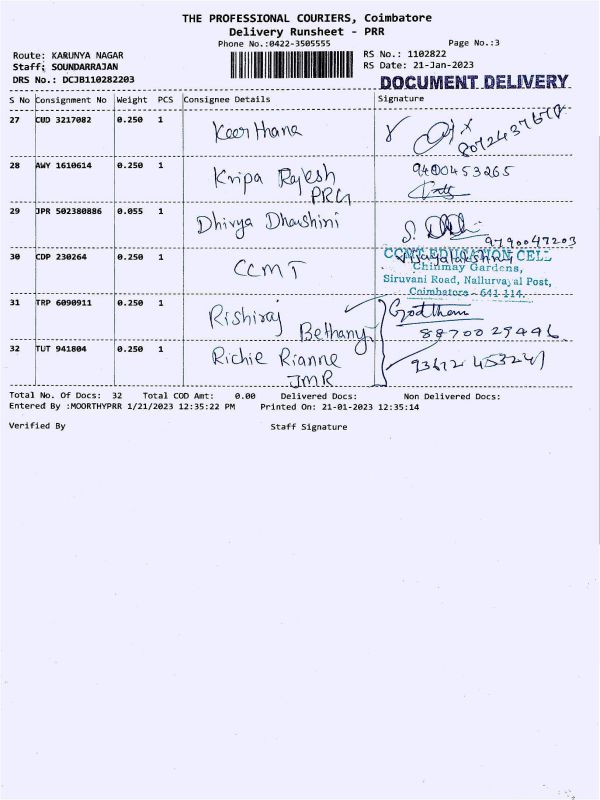 THE PROFESSIONAL COURIERS, Coimbatore
Delivery Runsheet - PRR
Phone No.:0422-3505555
Page No.:3
Route: KARUNYA NAGAR
RS No.: 1102822
Staff: SOUNDARRAJAN
RS Date: 21-Jan-2023
DRS No.: DCJB110282203
DOCUMENT DELIVERY
S No Consignment No Weight PCS Consignee Details Signature
27 CUD 3217082 0.250 1 Keerthana
28 AWY 1610614 0.250 1 Kripa Rajesh 9400453265
PRG
29 JPR 502380886 0.055 1 Dhivya Dharshini
9790047203
30 CDP 230264 0.250 1 CCMT
CCMT EDUCATION CELL
Chinmay Gardens,
Siruvani Road, Nallurvayal Post,
Coimbatore - 641 114.
31 TRP 6090911 0.250 1 Rishiraj
Bethany 8870029446
32 TUT 941804 0.250 1 Richie Rianne
JMR
Total No. Of Docs: 32 Total COD Amt: 0.00 Delivered Docs: Non Delivered Docs:
Entered By :MOORTHYPRR 1/21/2023 12:35:22 PM Printed On: 21-01-2023 12:35:14
Verified By Staff Signature